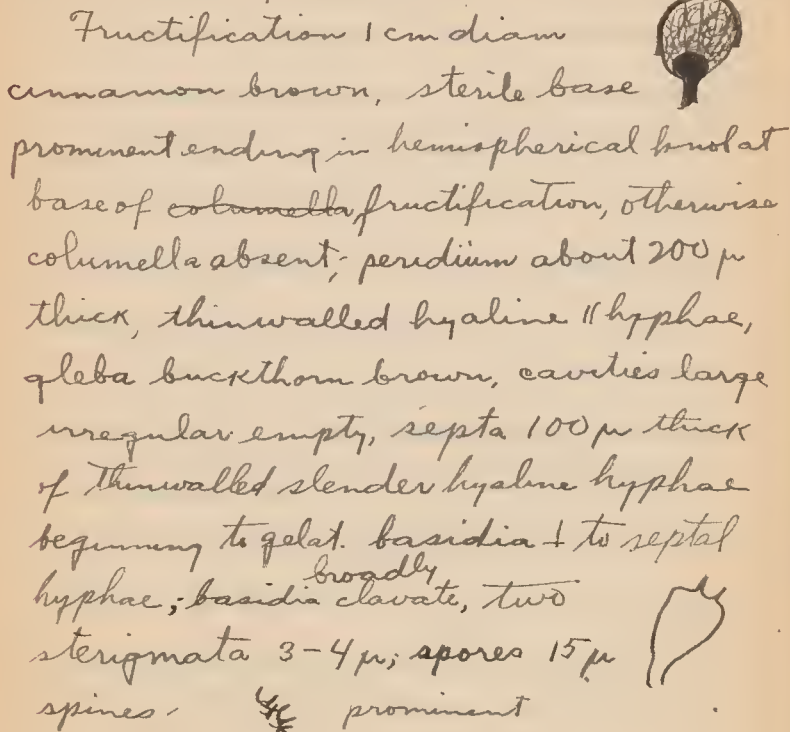 Fructification 1 cm diam
cinnamon brown, sterile base
prominent ending in hemispherical knol at
base of columella, fructification, otherwise
columella absent; peridium about 200 μ
thick, thinwalled hyaline || hyphae,
gleba buckthorn brown, cavities large
irregular empty, septa 100 μ thick
of thinwalled slender hyaline hyphae
beginning to gelat. basidia ⊥ to septal
broadly
hyphae; basidia clavate, two
sterigmata 3-4 μ; spores 15 μ
spines prominent